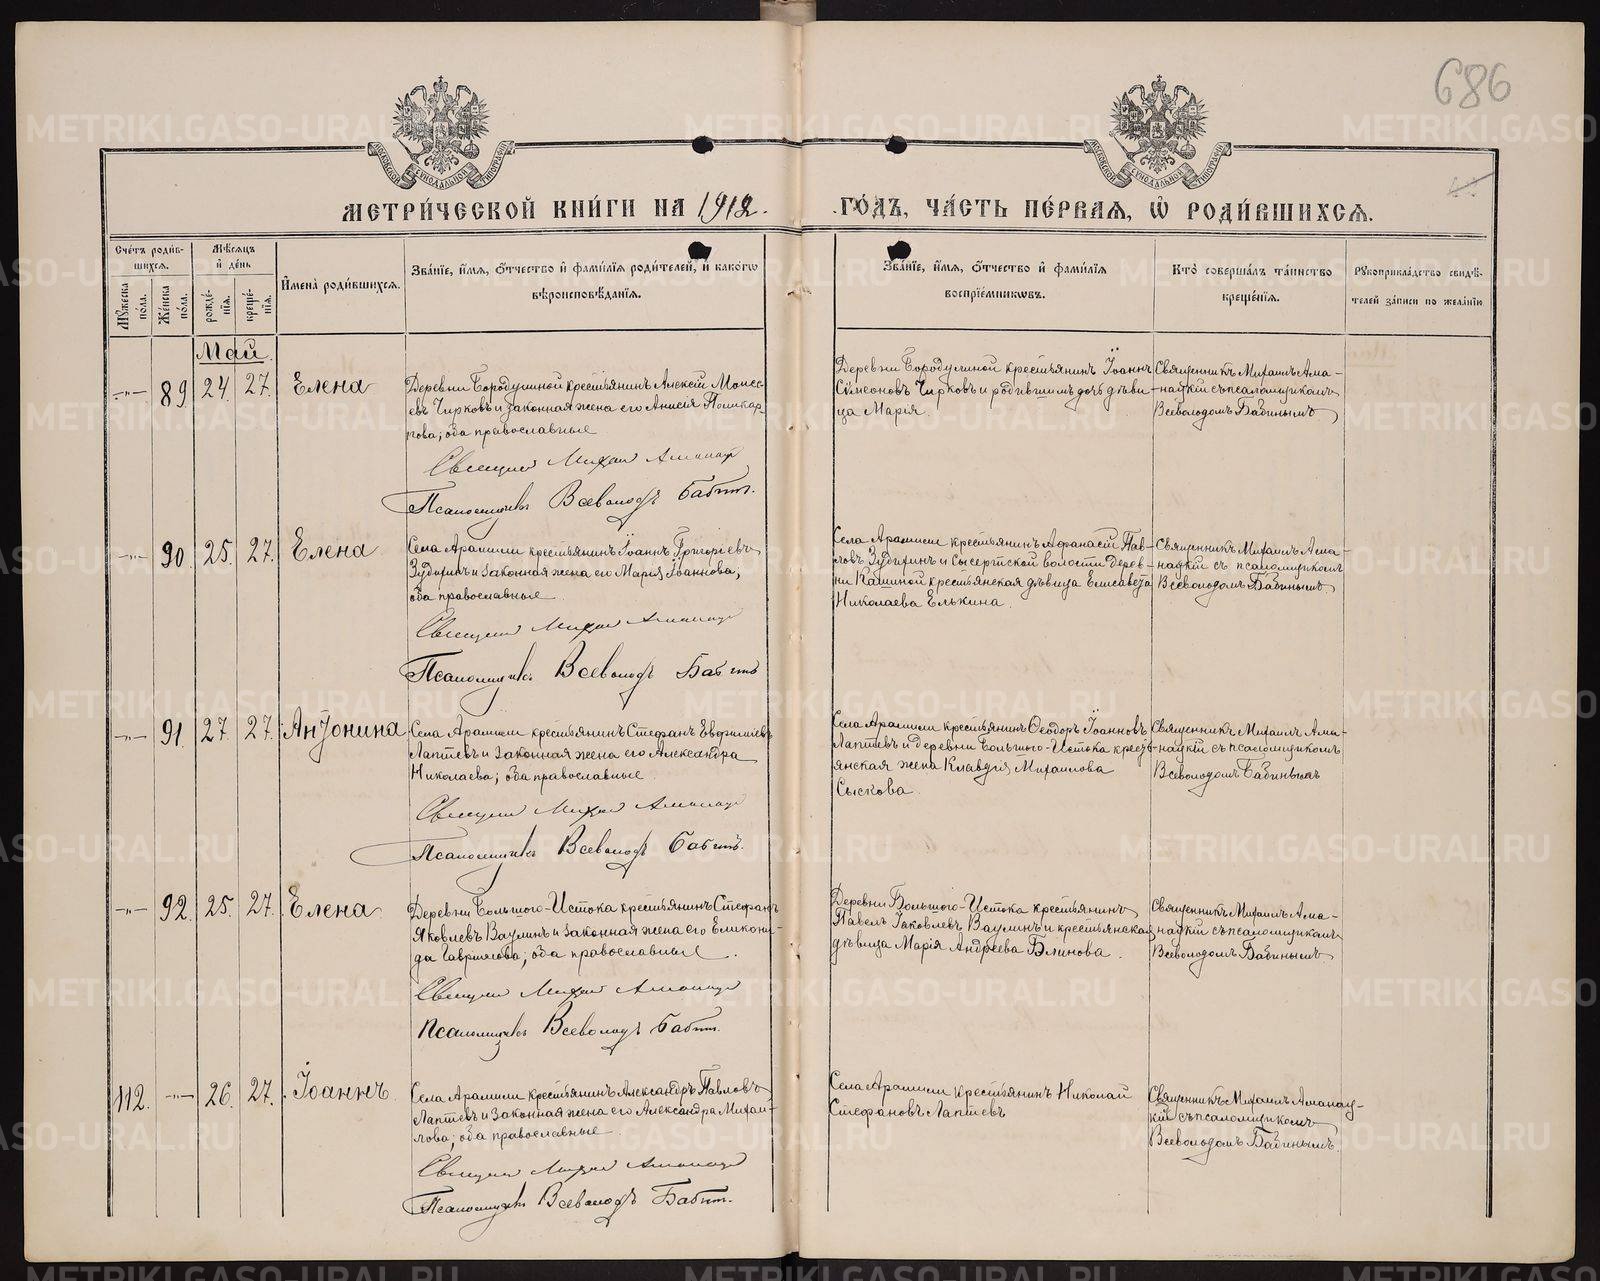 686
МЕТРИ́ЧЕСКОЙ КНИ́ГИ НА 1912.
ГО́ДЪ, ЧА́СТЬ ПЕ́РВАЯ, Ѡ҆ РОДИ́ВШИХСЯ.
Сче́тъ роди́вшихся.
Му́жеска по́ла.
Же́нска по́ла.
Мѣ́сяцъ и҆ де́нь
рожде́нїя.
креще́нїя.
И҆мена̀ роди́вшихся.
Зва́нїе, и҆́мя, ѻ҆́тчество и҆ фами́лїя роди́телей, и҆ како́гѡ
вѣроисповѣ́данїя.
Зва́нїе, и҆́мя, ѻ҆́тчество и҆ фами́лїя
воспрїе́мниковъ.
Кто̀ соверша́лъ та́инство
креще́нїя.
Рꙋкоприкла́дство свидѣ́-
телей за́писи по жела́нїю
Май.
—"— 89. 24. 27. Елена
Деревни Бородулиной крестьянинъ Алексій Моисе-
евъ Чирковъ и законная жена его Анисія
оба православные
Священникъ Михаилъ
Псаломщикъ Всеволодъ Бабинъ.
Деревни Бородулиной крестьянинъ Іоаннъ
Сѵмеоновъ Чирковъ и родившимъ дочь дѣви-
ца Марія.
Священникъ Михаилъ Ама-
нацкій съ псаломщикомъ
Всеволодомъ Бабинымъ
—"— 90. 25. 27. Елена
Села Арамили крестьянинъ Іоаннъ Григоріевъ
и законная жена его Марія Іоаннова,
оба православные
Священникъ Михаилъ
Псаломщикъ Всеволодъ Бабинъ
Села Арамили крестьянинъ Афанасій Пав-
ловъ и Сысертской волости дерев-
ни Кашиной крестьянская дѣвица Елисавета
Николаева Елькина.
Священникъ Михаилъ Ама-
нацкій съ псаломщикомъ
Всеволодомъ Бабинымъ
—"— 91. 27. 27. Антонина
Села Арамили крестьянинъ Стефанъ Евфиміевъ
Лаптевъ и законная жена его Александра
Николаева; оба православные
Священникъ Михаилъ
Псаломщикъ Всеволодъ Бабинъ.
Села Арамили крестьянинъ Ѳеодоръ Іоанновъ
Лаптевъ и деревни Большого-Истока кресть-
янская жена Клавдія Михаилова
Сыскова.
Священникъ Михаилъ Ама-
нацкій съ псаломщикомъ
Всеволодомъ Бабинымъ
—"— 92. 25. 27. Елена
Деревни Большого-Истока крестьянинъ Стефанъ
Яковлевъ Ваулинъ и законная жена его Еликони-
да Гавриилова; оба православные.
Священникъ Михаилъ
Псаломщикъ Всеволодъ Бабинъ.
Деревни Большого-Истока крестьянинъ
Павелъ Іаковлевъ Ваулинъ и крестьянская
дѣвица Марія Андреева Блинова.
Священникъ Михаилъ Ама-
нацкій съ псаломщикомъ
Всеволодомъ Бабинымъ
112. —"— 26. 27. Іоаннъ
Села Арамили крестьянинъ Александръ Павловъ
Лаптевъ и законная жена его Александра Михаи-
лова; оба православные
Священникъ Михаилъ
Псаломщикъ Всеволодъ Бабинъ.
Села Арамили крестьянинъ Николай
Стефановъ Лаптевъ
Священникъ Михаилъ Аманац-
кій съ псаломщикомъ
Всеволодомъ Бабинымъ.
METRIKI.GASO-URAL.RU